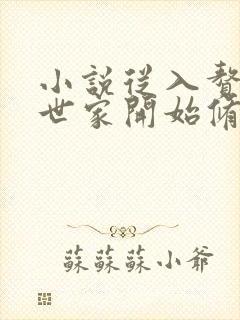 小說從入贅
世家開始脩
蘇蘇蘇小爺